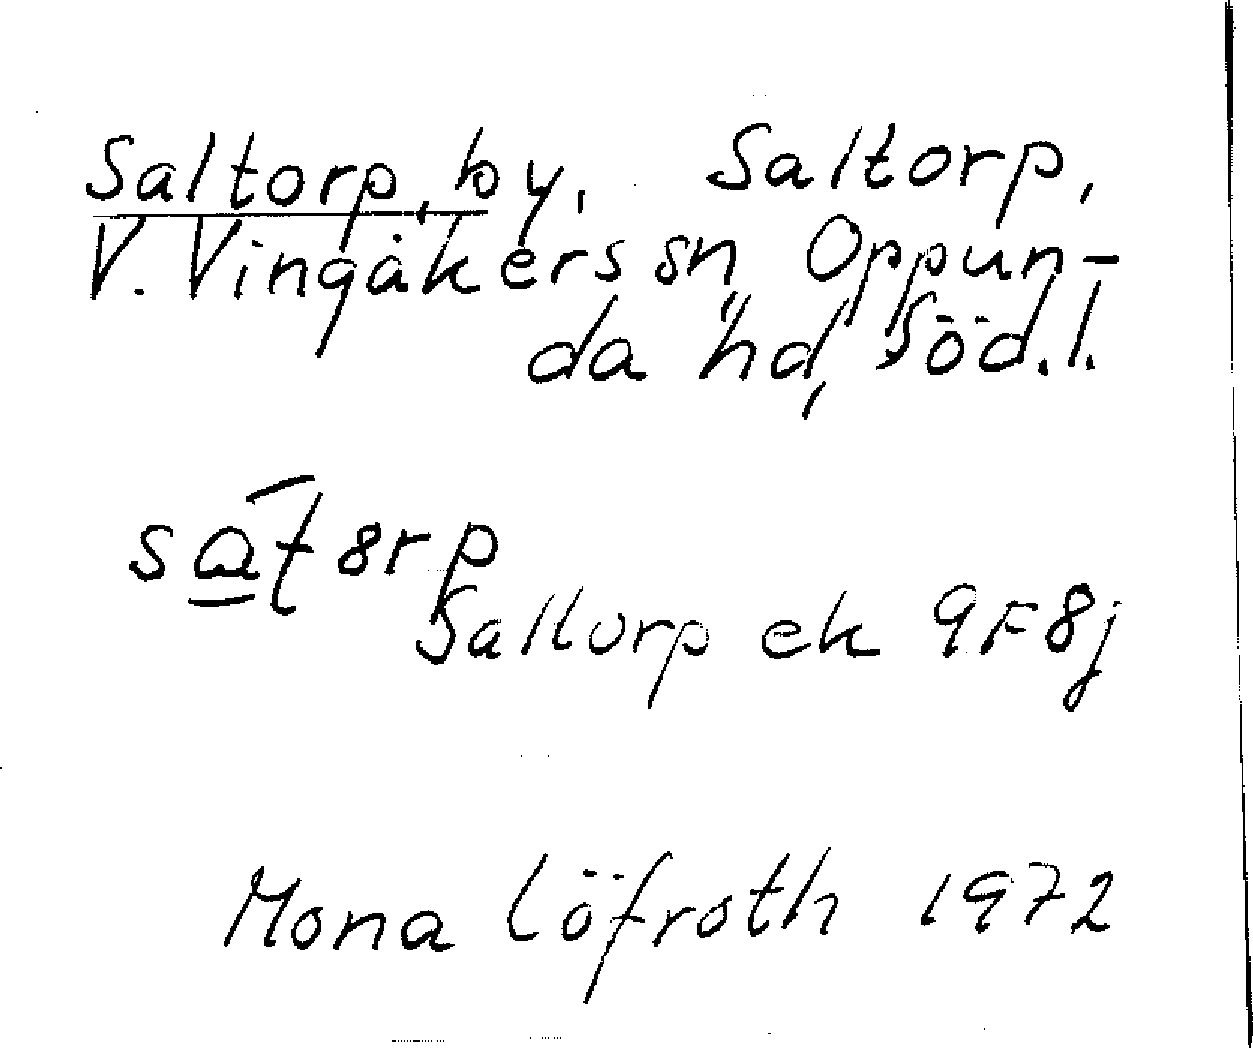 Saltorp, by, Saltorp,
V. Vingåkers sn Oppun-
da hd, Söd.l.
Saltorp ek 9F8j
Mona Löfroth 1972